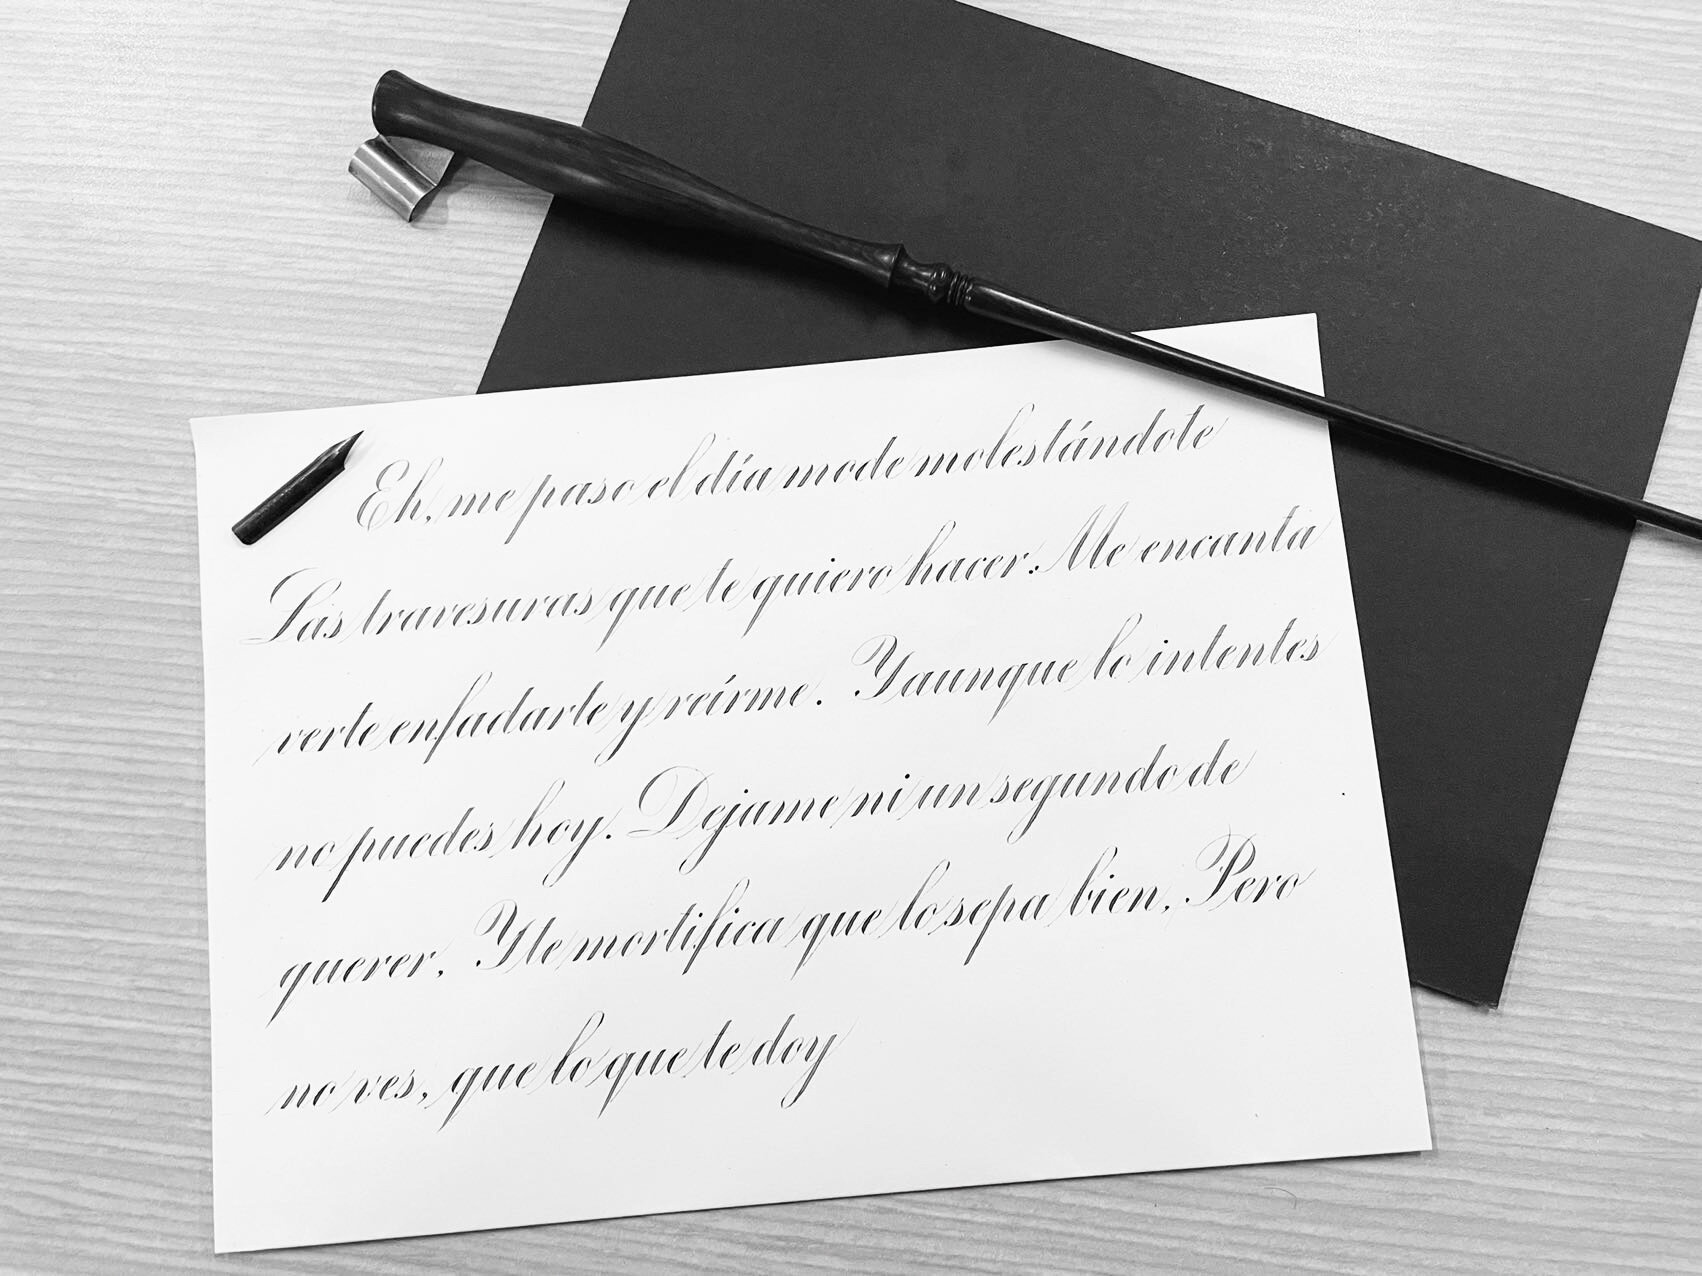 Eh, me paso el día mode molestándote
Las travesuras que te quiero hacer. Me encanta
verte enfadarte y reírme. Y aunque lo intentes
no puedes hoy. Dejame ni un segundo de
querer, Y te mortifica que lo sepa bien, Pero
no ves, que lo que te doy